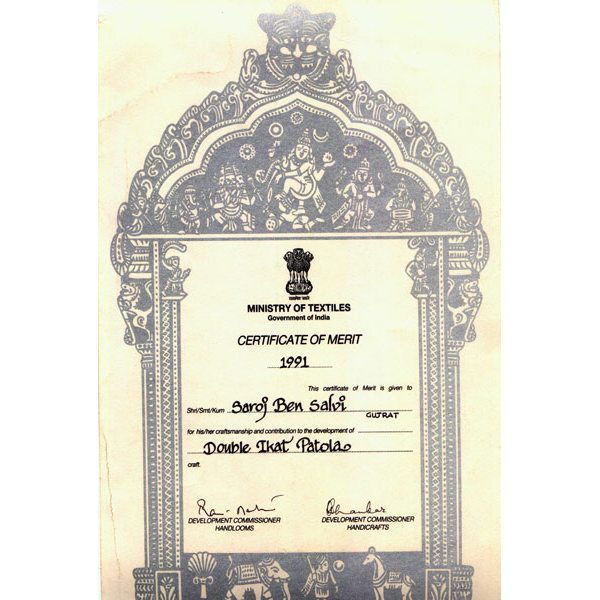 सत्यमेव जयते
MINISTRY OF TEXTILES
Government of India
CERTIFICATE OF MERIT
1991
This certificate of Merit is given to
Shri/Smt/Kum Saroj Ben Salvi
GUJRAT
for his/her craftsmanship and contribution to the development of
Double Ikat Patola
craft.
DEVELOPMENT COMMISSIONER DEVELOPMENT COMMISSIONER
HANDLOOMS HANDICRAFTS